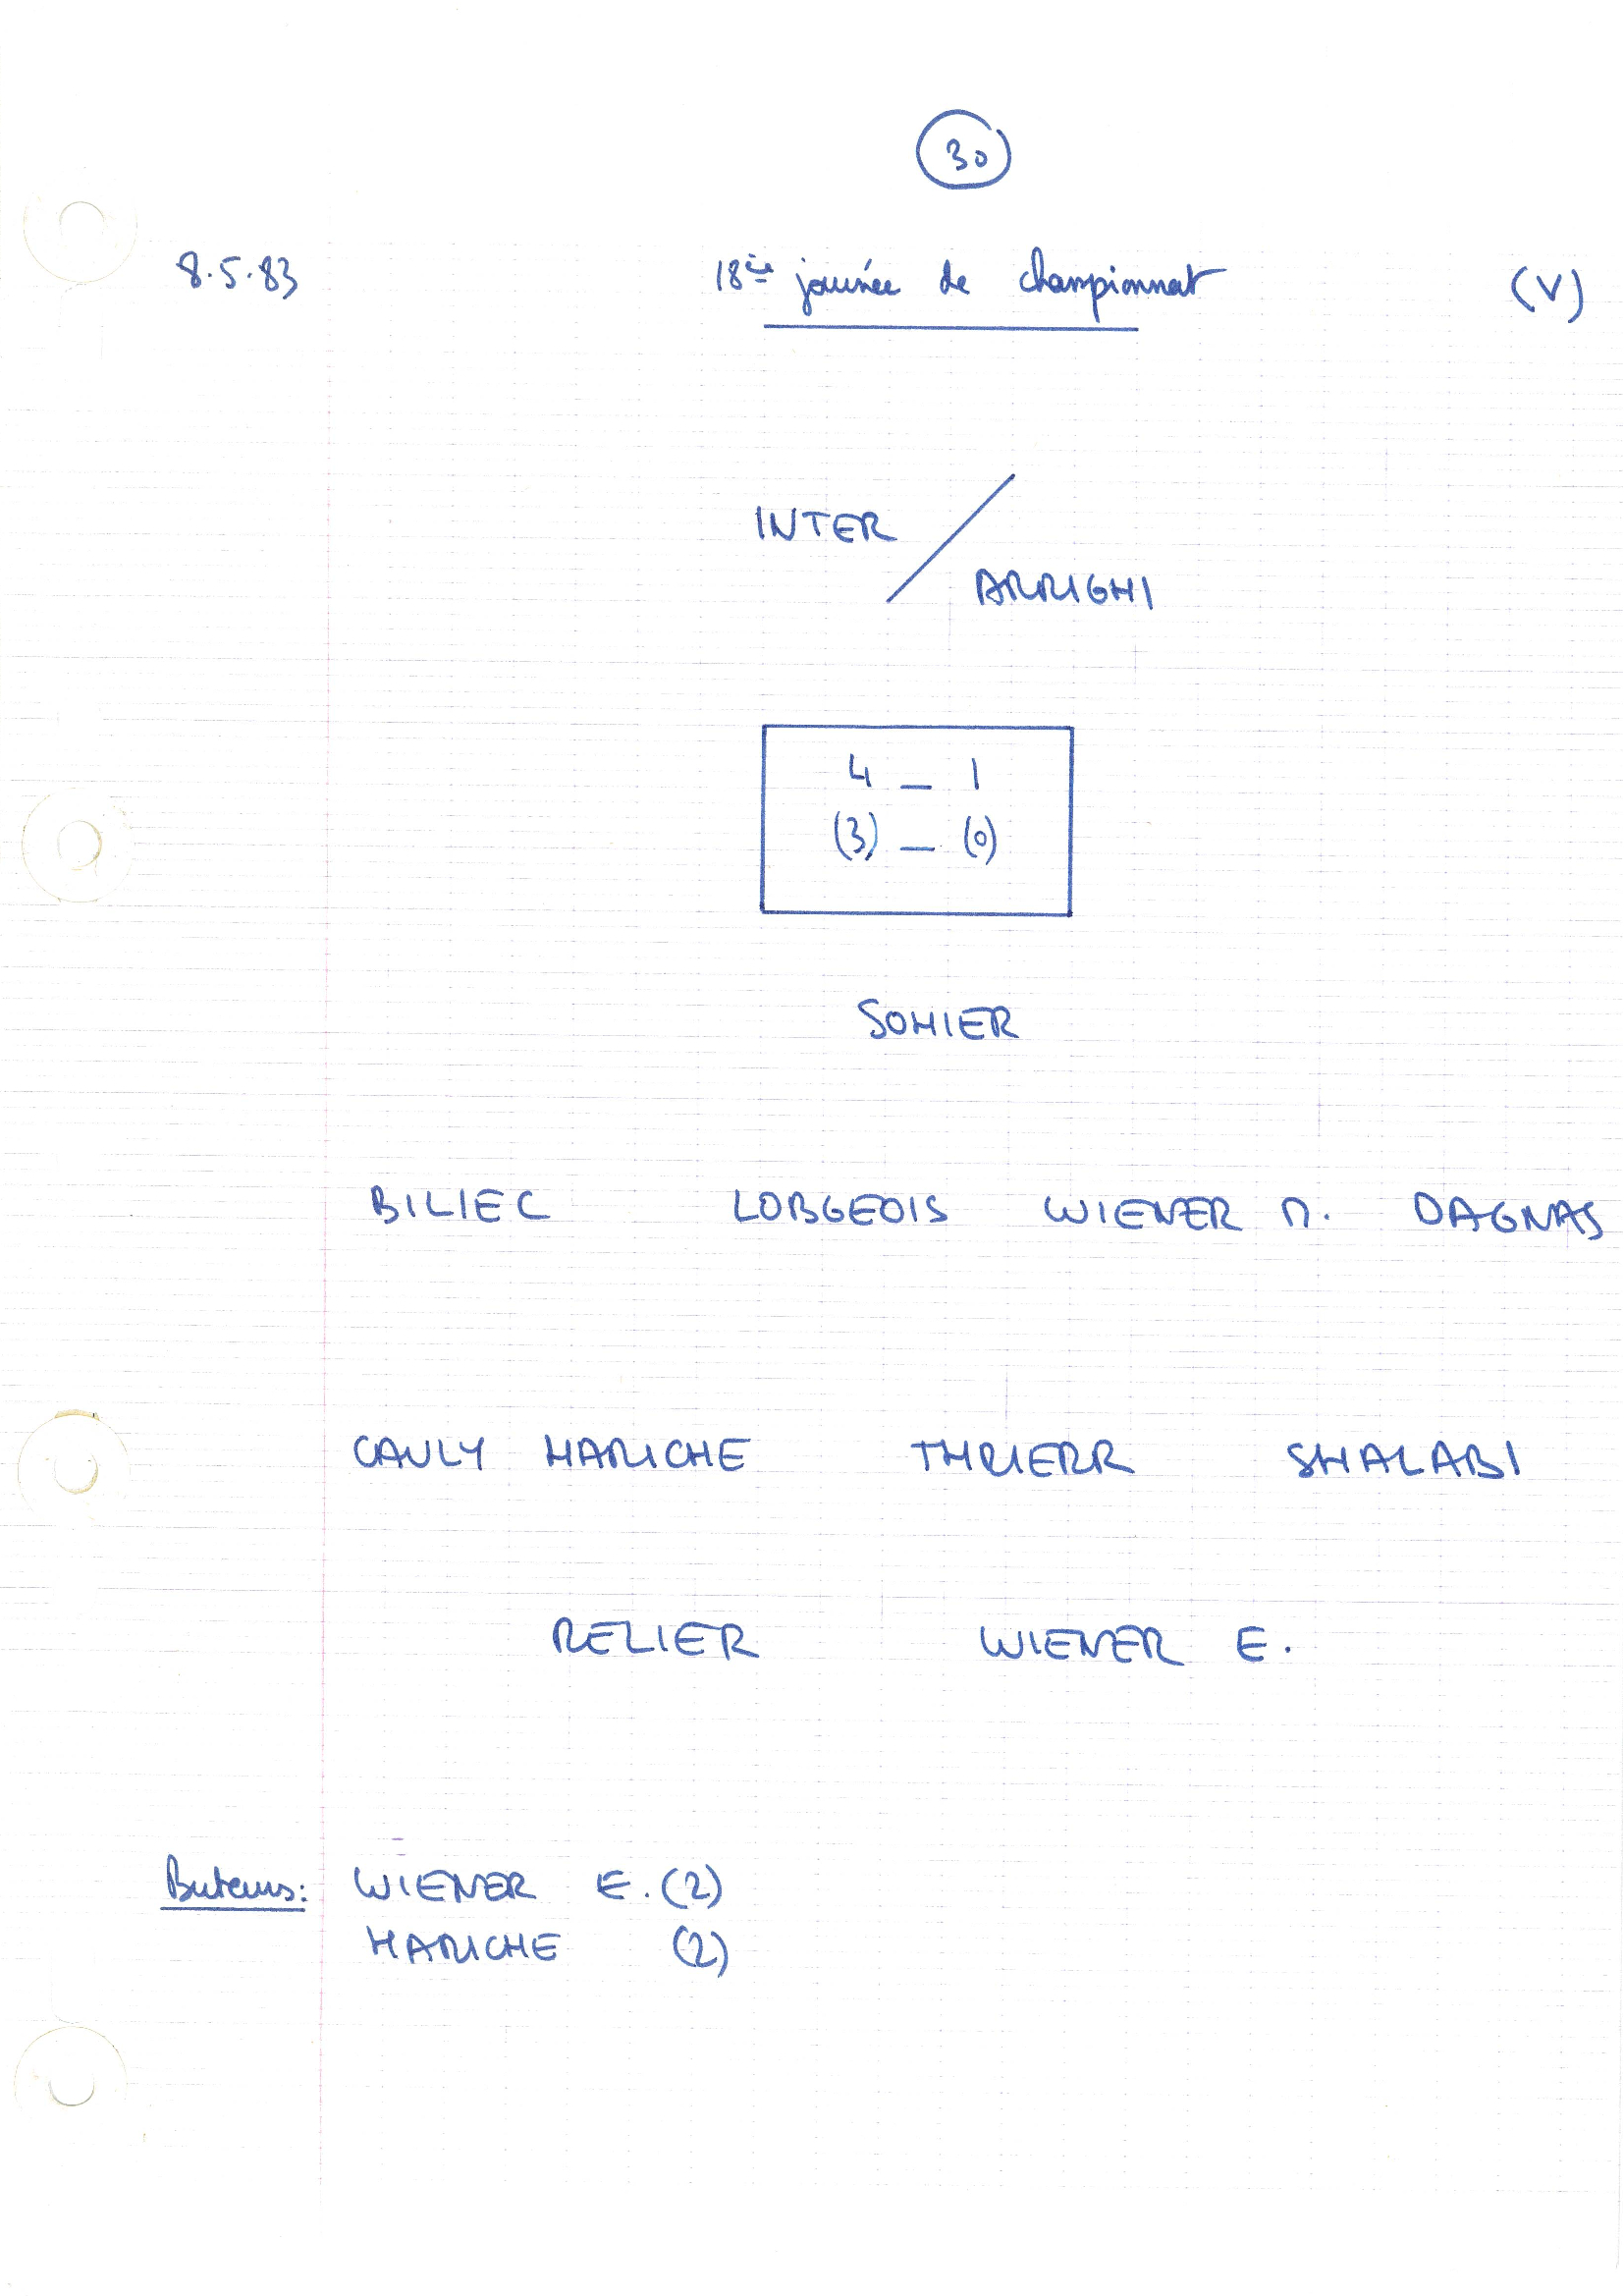 30
8.5.83 18ème journée de championnat (V)
INTER / ARRIGHI
4 _ 1
(3) _ (0)
SOHIER
BILIEC LOBGEOIS WIENER M. DAGNAS
CAULY HARICHE THRIERR SHALABI
RELIER WIENER E.
Buteurs: WIENER E. (2)
HARICHE (2)